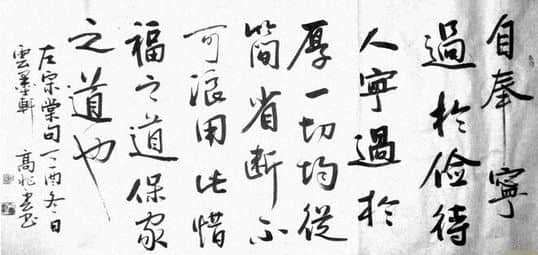 自奉寧
過於儉待
人寧過於
厚一切均從
簡省斷不
可浪用此惜
福之道保家
之道也
左宗棠句丁酉冬日
雲墨軒 高兆書